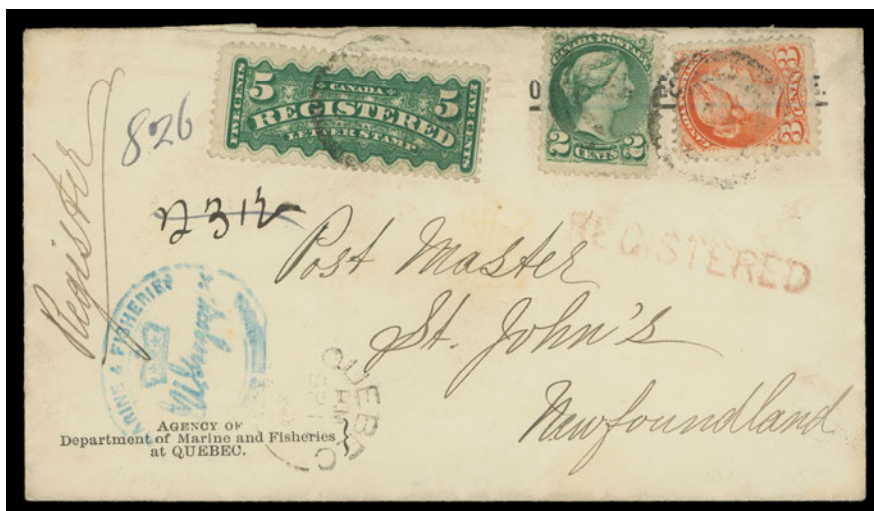 5 CANADA 5
FIVE CENTS REGISTERED FIVE CENTS
LETTER STAMP
CANADA POSTAGE
2 CENTS 2
3 CENTS 3
826
Register
2312
REGISTERED
Post Master
St. John's
Newfoundland
MARINE & FISHERIES
QUEBEC
PM
AGENCY OF
Department of Marine and Fisheries
at QUEBEC.